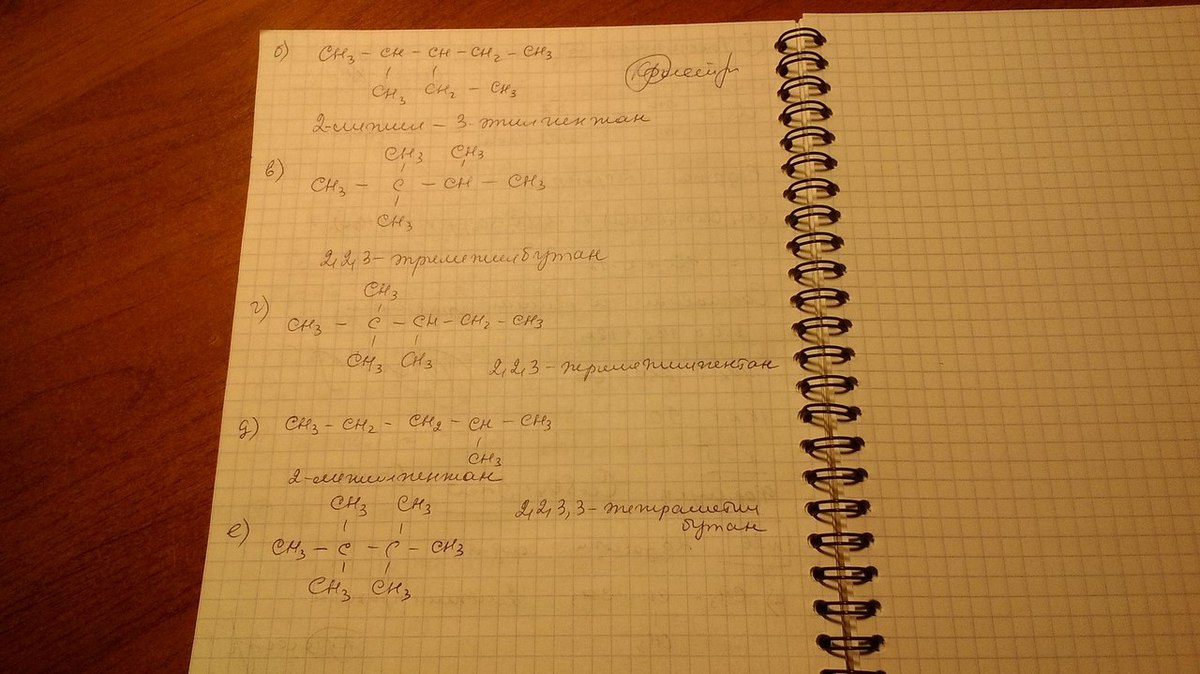 б) CH₃ – CH – CH – CH₂ – CH₃
CH₃ CH₂ – CH₃
2-метил – 3-этилпентан
CH₃ CH₃
в) CH₃ – C – CH – CH₃
CH₃
2,2,3-триметилбутан
CH₃
г) CH₃ – C – CH – CH₂ – CH₃
CH₃ CH₃
2,2,3-триметилпентан
д) CH₃ – CH₂ – CH₂ – CH – CH₃
CH₃
2-метилпентан
CH₃ CH₃
2,2,3,3-тетраметил
бутан
е) CH₃ – C – C – CH₃
CH₃ CH₃